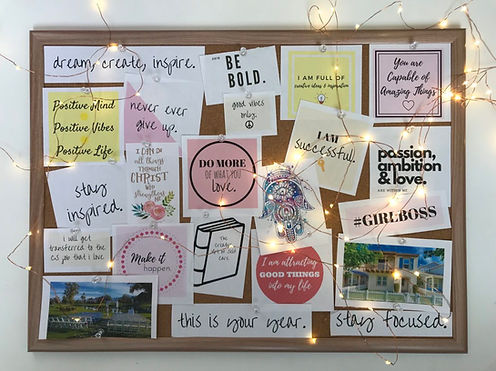 dream, create, inspire.
BE
BOLD.
I AM FULL OF
creative ideas & inspiration
You are
Capable of
Amazing Things
Positive Mind
Positive Vibes
Positive Life
never ever
give up.
good vibes
only.
I AM
successful.
DO MORE
OF WHAT YOU
LOVE.
I CAN DO
all things
THROUGH
CHRIST
WHO
strengthens
ME
passion,
ambition
& love.
ARE WITHIN ME
stay
inspired.
#GIRLBOSS
I will get
transferred to the
that I love
Make it
happen.
The
I am attracting
GOOD THINGS
into my life
this is your year.
stay focused.